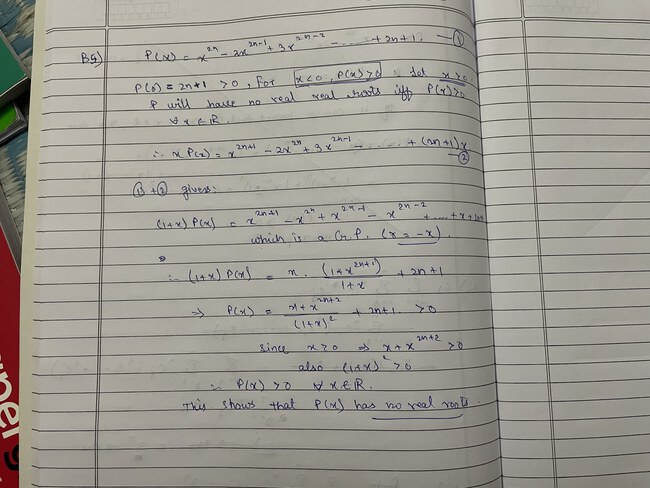 B5) P(x) = x^{2n} - 2x^{2n-1} + 3x^{2n-2} - ... + 2n+1. — ①
P(0) = 2n+1 > 0, for x<0, P(x)>0. Let x≥0.
P will have no real roots iff P(x)>0
∀ x ∈ R.
∴ x P(x) = x^{2n+1} - 2x^{2n} + 3x^{2n-1} - ... + (2n+1)x — ②
① + ② gives:
(1+x) P(x) = x^{2n+1} - x^{2n} + x^{2n-1} - x^{2n-2} + ... + x + 2n+1
which is a G.P. (r = -x).
∴ (1+x) P(x) = x. (1+x^{2n+1})/(1+x) + 2n+1
⇒ P(x) = (x+x^{2n+2})/(1+x)^2 + 2n+1 > 0
since x≥0 ⇒ x + x^{2n+2} > 0
also (1+x)^2 > 0
∴ P(x) > 0 ∀ x ∈ R.
This shows that P(x) has no real roots.